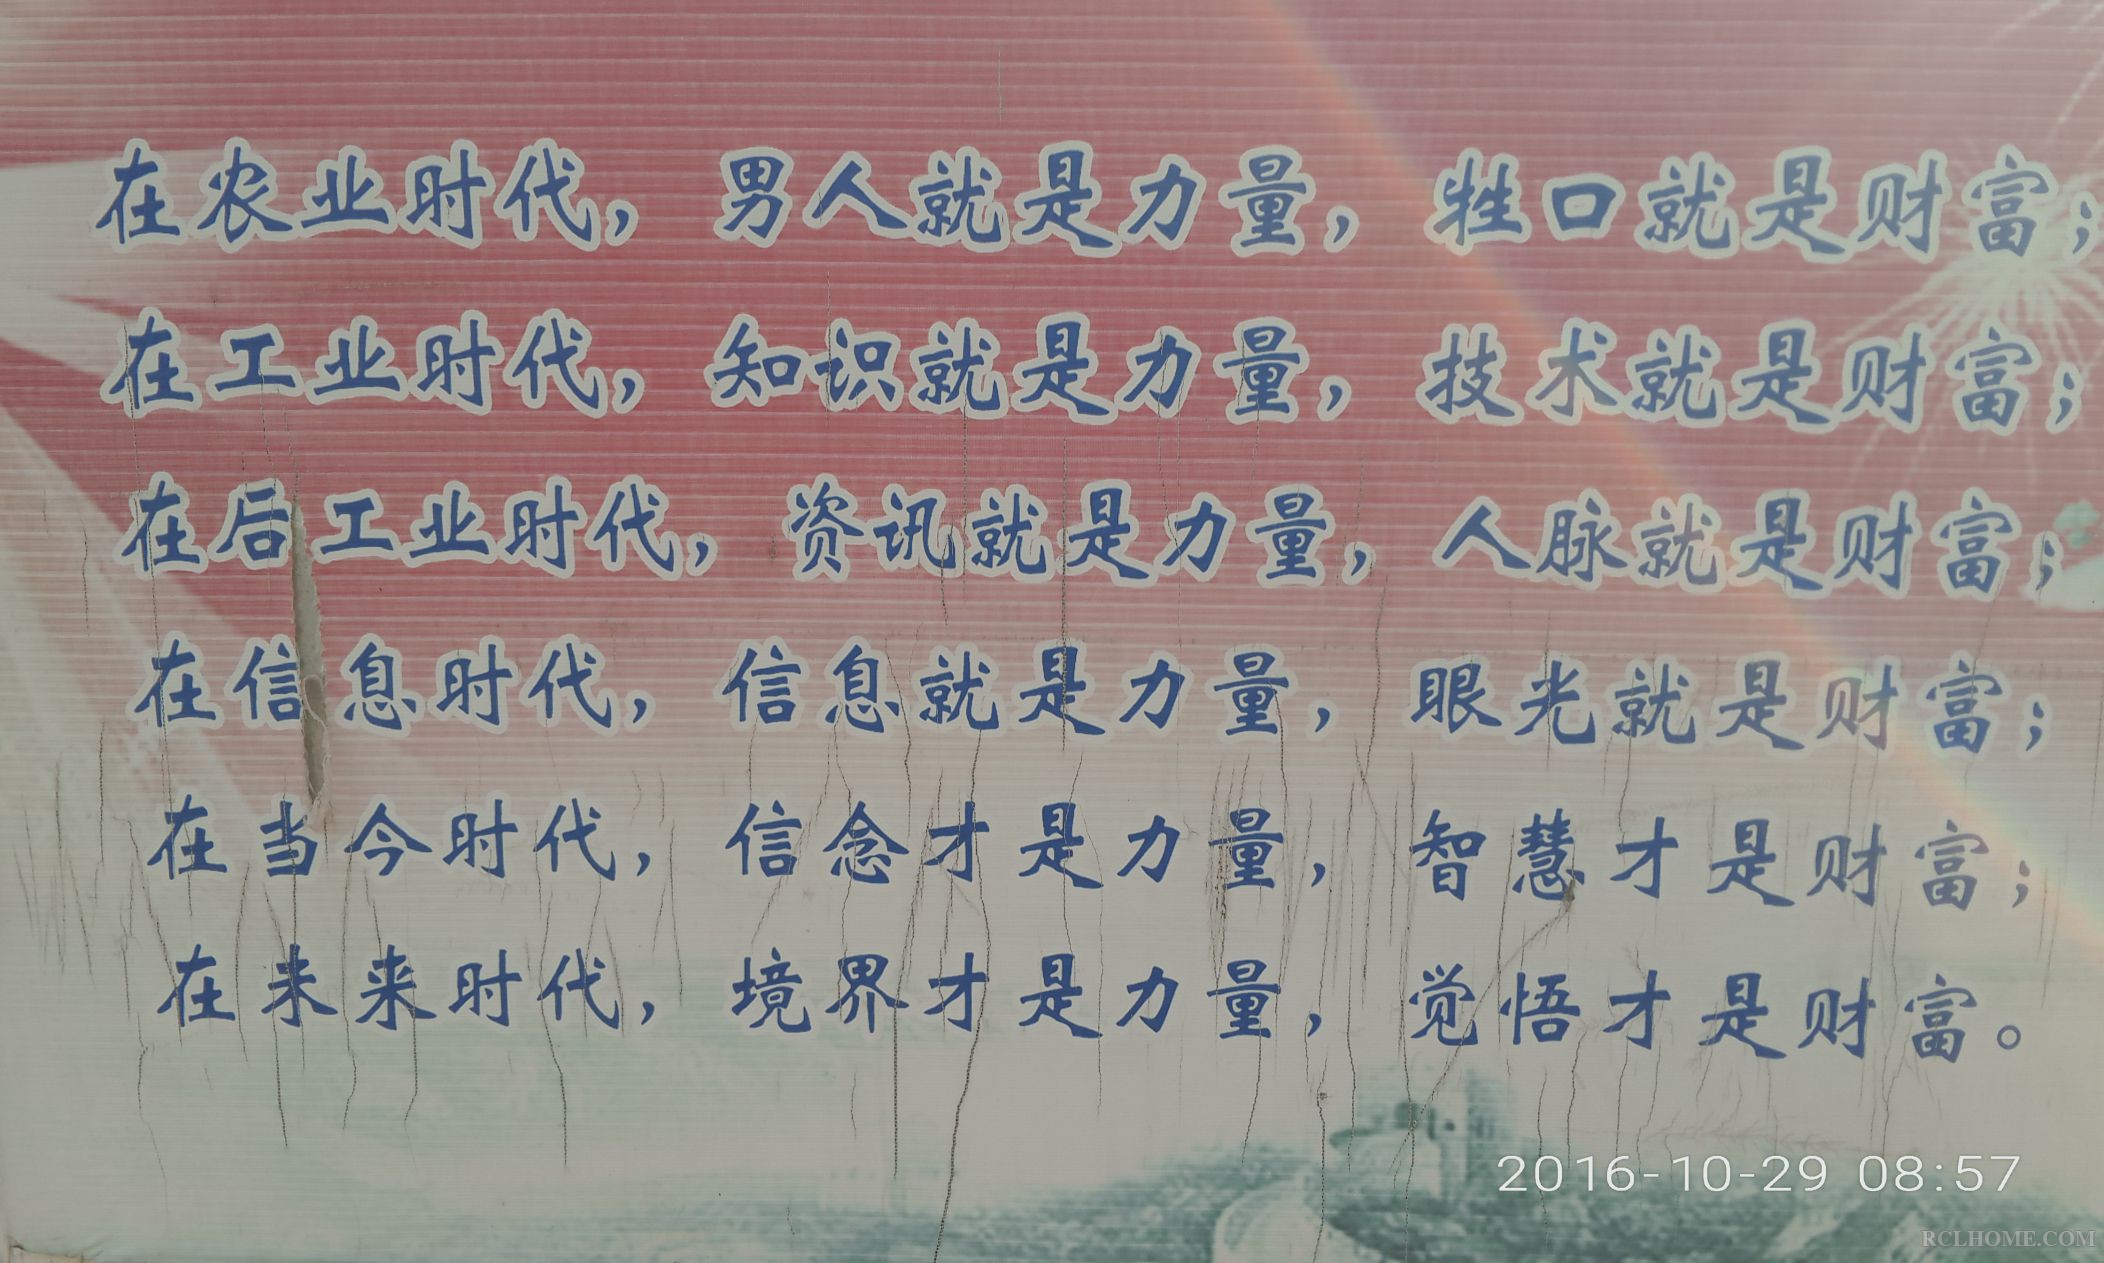 在农业时代，男人就是力量，牲口就是财富；
在工业时代，知识就是力量，技术就是财富；
在后工业时代，资讯就是力量，人脉就是财富；
在信息时代，信息就是力量，眼光就是财富；
在当今时代，信念才是力量，智慧才是财富；
在未来时代，境界才是力量，觉悟才是财富。
2016-10-29 08:57
RCLHOME.COM